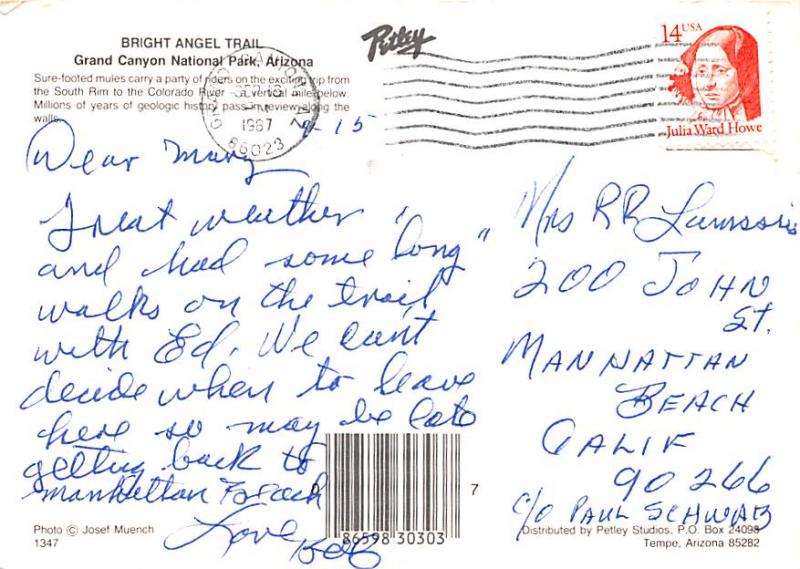 BRIGHT ANGEL TRAIL
Grand Canyon National Park, Arizona
Sure-footed mules carry a party of riders on the exciting trip from
the South Rim to the Colorado River - a vertical mile below.
Millions of years of geologic history pass in review along the
walls.
Petley
14 USA
Julia Ward Howe
1987
86023
9-15
Dear Mary
Great weather
and had some "long"
walks on the trail
with Ed. We can't
decide when to leave
here so may be late
getting back to
Manhattan Beach
Love,
Bob
Mrs RR
200 JOHN
St.
MANHATTAN
BEACH
CALIF
90266
c/o PAUL SCHWAB
0
7
86598 30303
Photo © Josef Muench
1347
Distributed by Petley Studios, P.O. Box 24098
Tempe, Arizona 85282